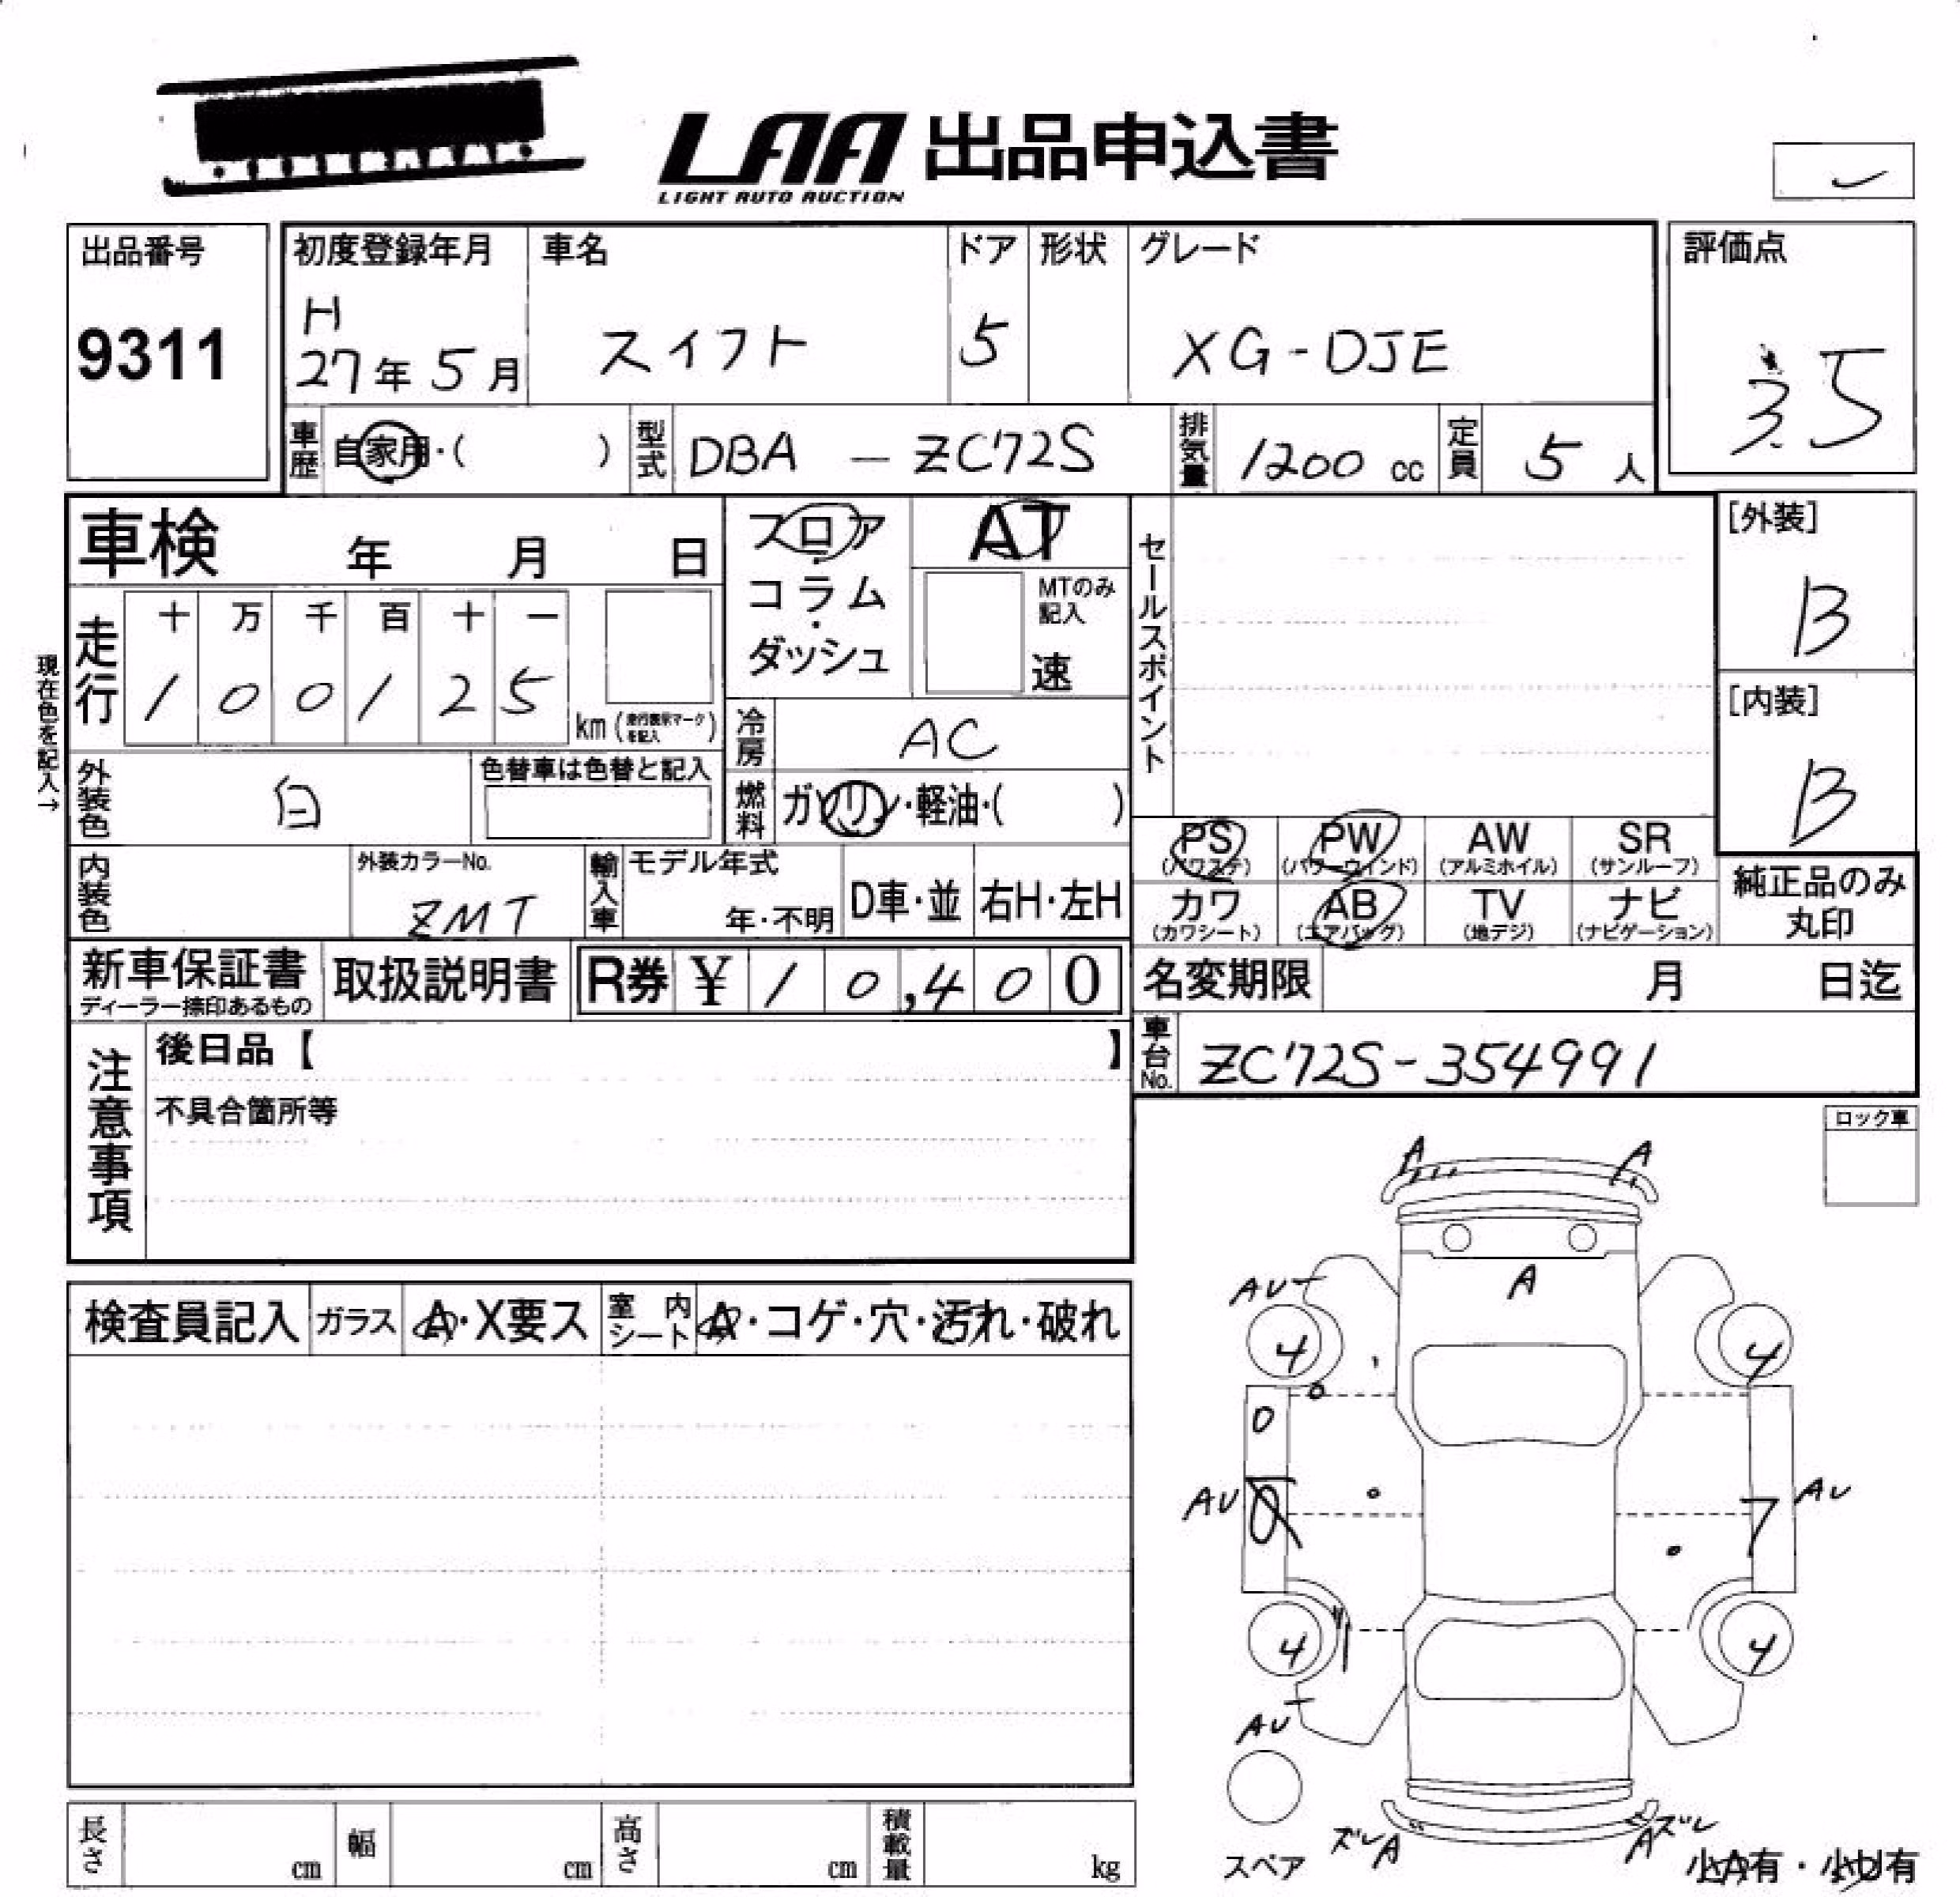 LAA 出品申込書
LIGHT AUTO AUCTION
出品番号
9311
初度登録年月
H
27年 5月
車名
スイフト
ドア
5
形状
グレード
XG-DJE
評価点
3.5
車歴
自家用・( )
型式
DBA - ZC72S
排気量
1200 cc
定員
5 人
車検 年 月 日
フロア・コラム・ダッシュ
AT
MTのみ記入
速
セールスポイント
[外装]
B
[内装]
B
現在色を記入→
走行
十 万 千 百 十 一
1 0 0 1 2 5
km (走行表示マークを記入)
冷房
AC
外装色
白
色替車は色替と記入
燃料
ガソリン・軽油・( )
PS (パワステ)
PW (パワーウィンド)
AW (アルミホイル)
SR (サンルーフ)
カワ (カワシート)
AB (エアバッグ)
TV (地デジ)
ナビ (ナビゲーション)
純正品のみ丸印
内装色
外装カラーNo.
ZMT
輸入車
モデル年式
年・不明
D車・並
右H・左H
新車保証書
ディーラー捺印あるもの
取扱説明書
R券 ¥ 1 0,4 0 0
名変期限 月 日迄
注意事項
後日品【 】
不具合箇所等
車台No.
ZC72S-354991
ロック車
A A
A
AU
4 4
0
AU AU
7
4 4
AU
ズレA
Aズレ
スペア
小A有・小U有
検査員記入
ガラス
A・X要ス
室内シート
A・コゲ・穴・汚れ・破れ
長さ cm
幅 cm
高さ cm
積載量 kg